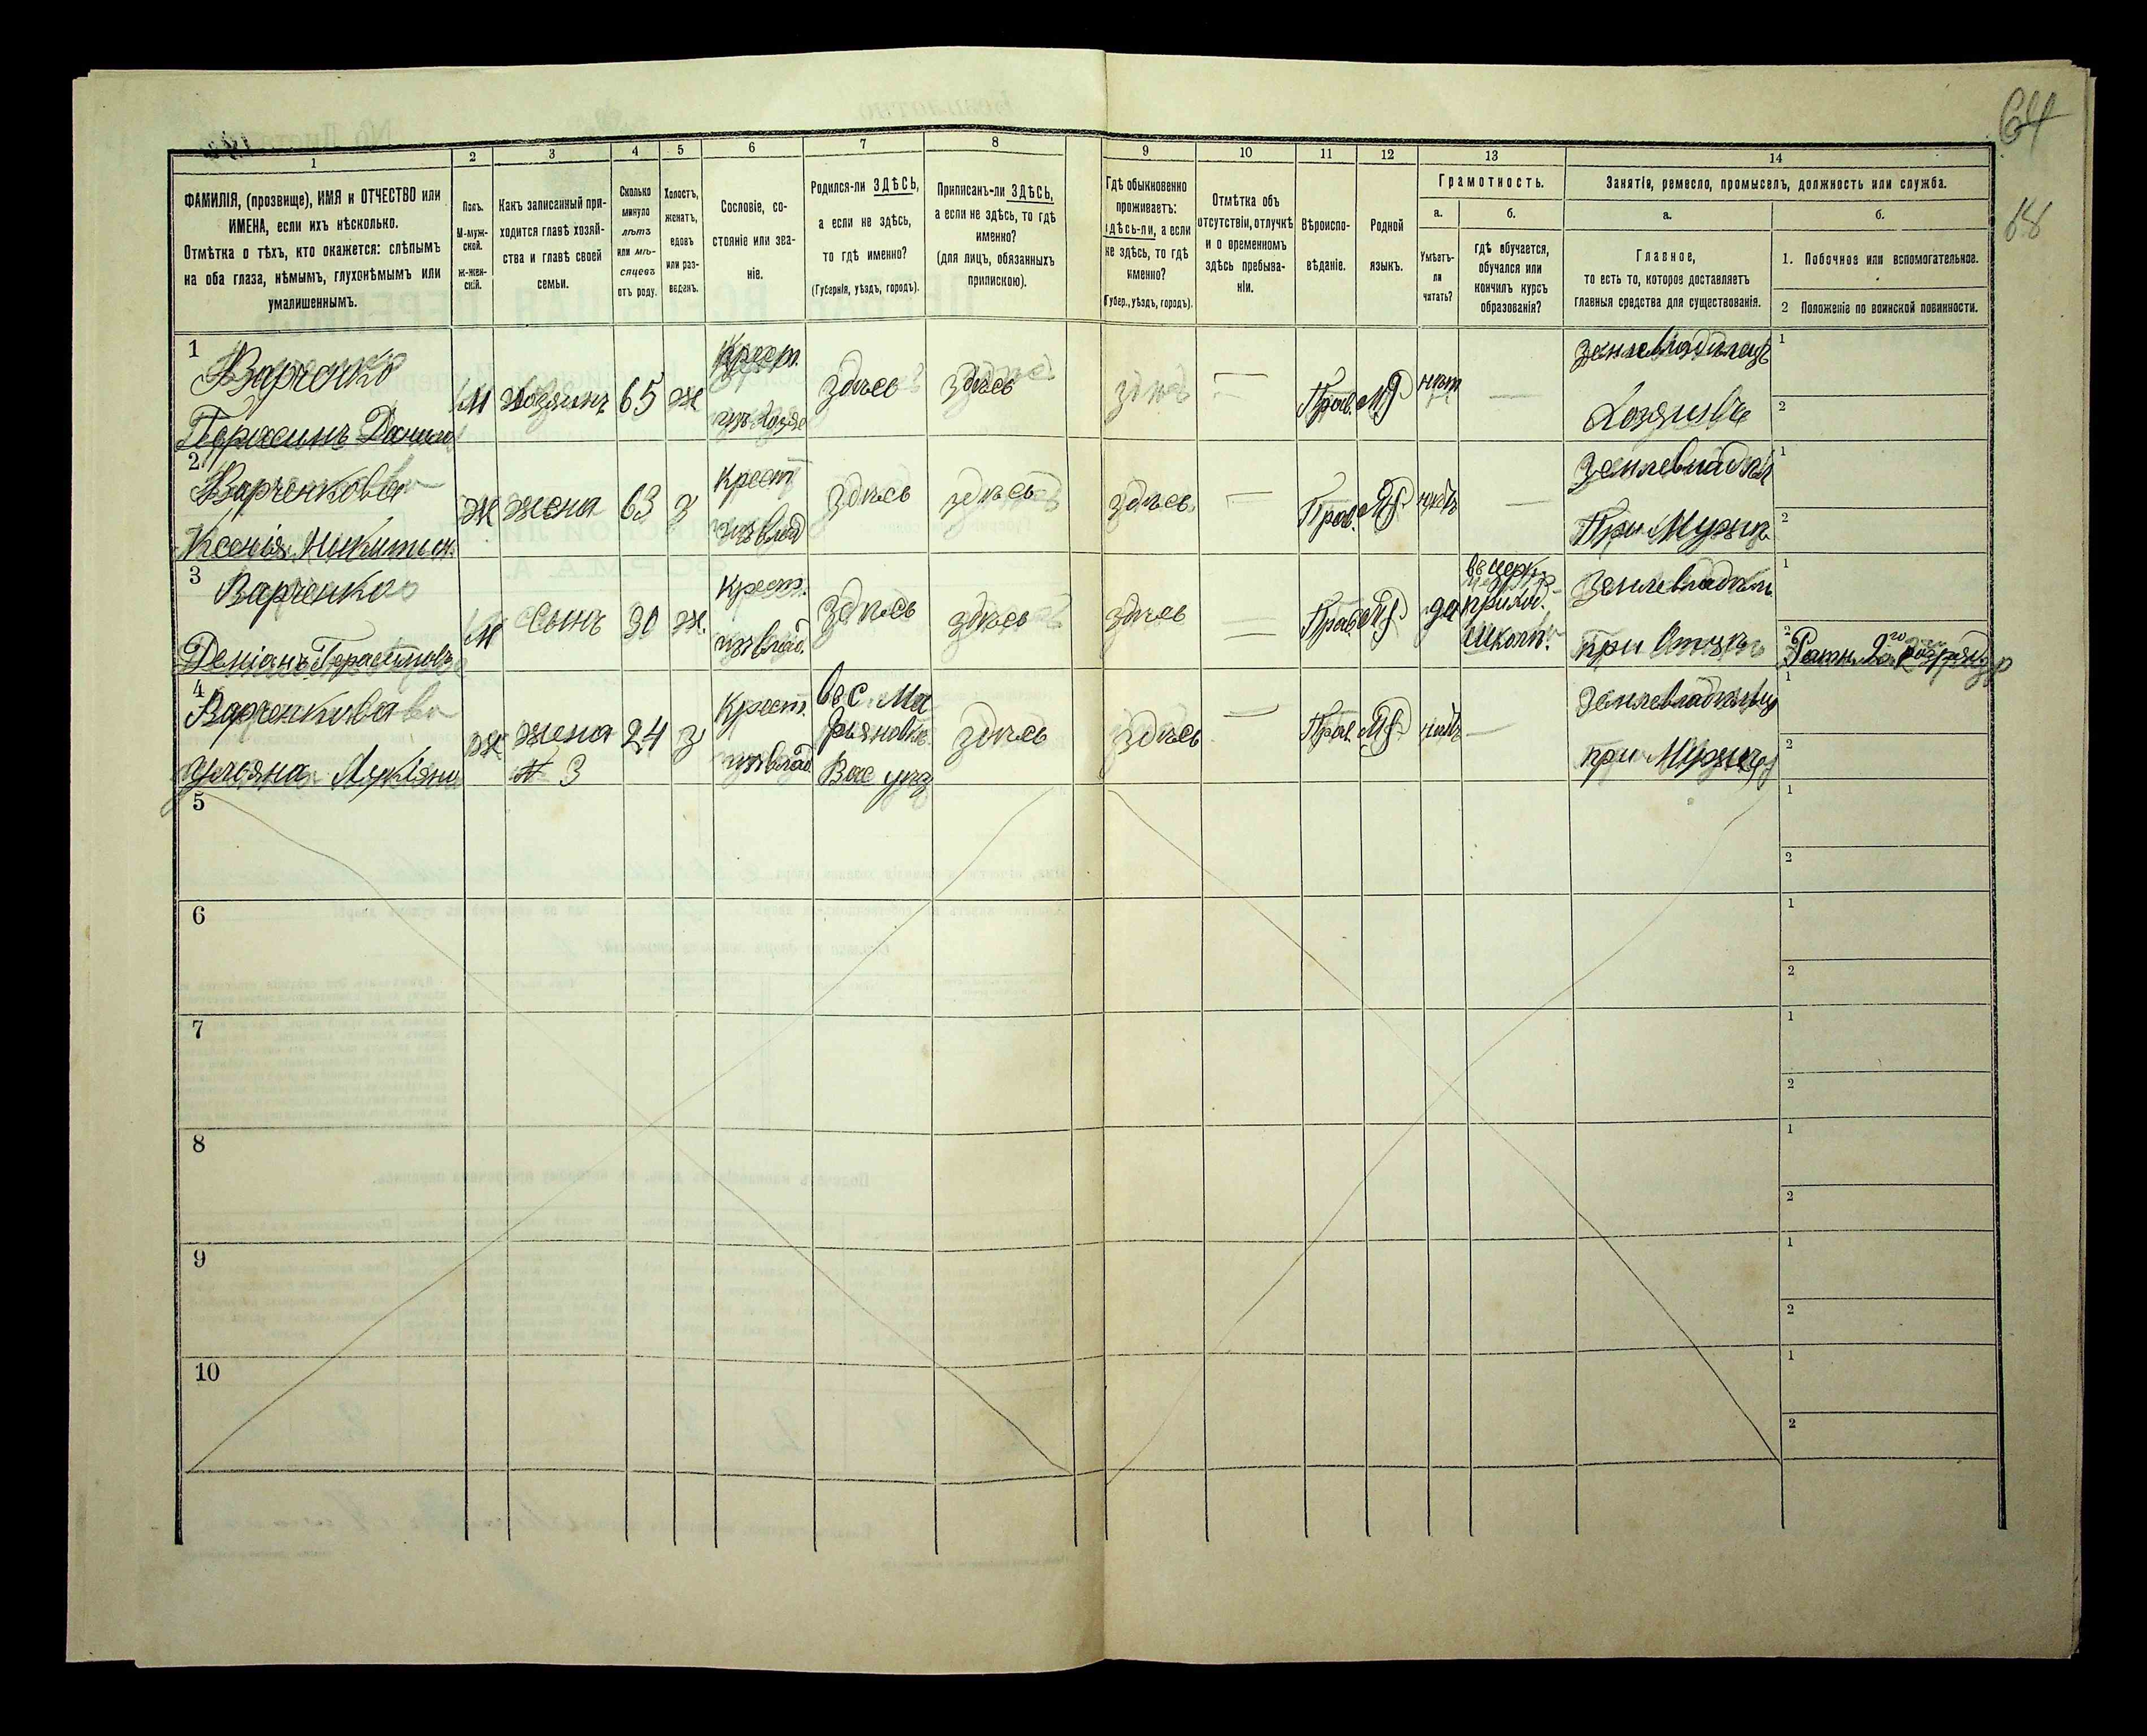 64
68
1
2
3
4
5
6
7
8
9
10
11
12
13
14
ФАМИЛІЯ, (прозвище), ИМЯ и ОТЧЕСТВО или
ИМЕНА, если ихъ нѣсколько.
Отмѣтка о тѣхъ, кто окажется: слѣпымъ
на оба глаза, нѣмымъ, глухонѣмымъ или
умалишеннымъ.
Полъ.
М-муж-
ской.
Ж-жен-
скій.
Какъ записанный при-
ходится главѣ хозяй-
ства и главѣ своей
семьи.
Сколько
минуло
лѣтъ
или мѣ-
сяцевъ
отъ роду.
Холостъ,
женатъ,
вдовъ
или раз-
веденъ.
Сословіе, со-
стояніе или зва-
ніе.
Родился-ли ЗДѢСЬ,
а если не здѣсь,
то гдѣ именно?
(Губернія, уѣздъ, городъ).
Приписанъ-ли ЗДѢСЬ,
а если не здѣсь, то гдѣ
именно?
(для лицъ, обязанныхъ
припискою).
Гдѣ обыкновенно
проживаетъ:
здѣсь-ли, а если
не здѣсь, то гдѣ
именно?
(Губер., уѣздъ, городъ).
Отмѣтка объ
отсутствіи, отлучкѣ
и о временномъ
здѣсь пребыва-
ніи.
Вѣроиспо-
вѣданіе.
Родной
языкъ.
Грамотность.
а.
Умѣетъ-
ли
читать?
б.
гдѣ обучается,
обучался или
кончилъ курсъ
образованія?
Занятіе, ремесло, промыселъ, должность или служба.
а.
Главное,
то есть то, которое доставляетъ
главныя средства для существованія.
б.
1. Побочное или вспомогательное.
2 Положеніе по воинской повинности.
1
Варченко
Герасимъ Данилов
М
Хозяинъ
65
Ж
Крест.
здѣсь
здѣсь
здѣсь
—
Прав.
МР
нѣт
—
Землевладѣлецъ
Хозяинъ
1
2
2
Варченкова
Ксенія Никитин.
Ж
жена
63
З
Крест
изъ влад
здѣсь
здѣсь
здѣсь
—
Прав.
МР.
нѣтъ
—
При Мужѣ
1
2
3
Варченко
Деміанъ Герасимовъ
М
Сынъ
30
Ж.
Крест.
изъ влад.
здѣсь
здѣсь
здѣсь
—
Прав.
МР.
да
въ церк.
приход.
школѣ.
при Отцѣ
1
2
Ратн. 2го разряда
4
Варченкова
Ульяна
Ж
жена
№ 3
24
З
Крест.
изъ влад
въ с. Ма
рьяновке
Вас уѣз
здѣсь
здѣсь
—
Прав.
МР.
нѣтъ
—
при Мужѣ
1
2
5
1
2
6
1
2
7
1
2
8
1
2
9
1
2
10
1
2